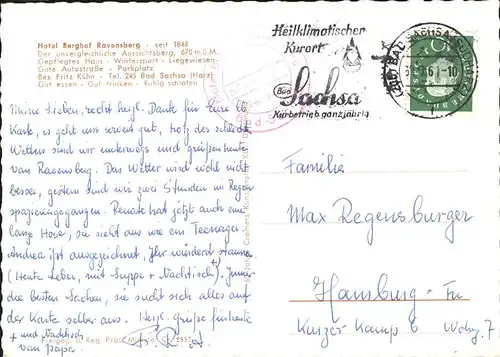 Hotel Berghof Ravensberg · seit 1848
Der unvergleichliche Aussichtsberg, 670 m ü.M.
Gepflegtes Haus - Wintersport - Liegewiesen
Gute Autostraße - Parkplatz
Bes. Fritz Kühn - Tel. 245 Bad Sachsa (Harz)
Gut essen - Gut trinken - Ruhig schlafen
Heilklimatischer
Kurort
Bad
Sachsa
Kurbetrieb ganzjährig
BAD SACHSA
Meine Lieben, recht herzl. Dank für Eure lb.
Karte, es geht uns soweit gut, trotz des schlecht.
Wetters sind wir unterwegs und grüßen heute
vom Ravensbg. Das Wetter wird wohl nicht
besser, gestern sind wir zwei Stunden im Regen
spazierengegangen. Renate hat jetzt auch eine
lange Hose, sie sieht aus wie ein Teenager.
Andrea ißt ausgezeichnet, Ihr würdet staunen
(Heute Leber, mit Suppe + Nachtisch). Immer
die besten Sachen, sie sucht sich alles auf
der Karte selber aus. Herzl. Grüße für heute
+ und Nachtisch
vom Papa.
Familie
Max Regensburger
Hamburg - Fu
Kurzer Kamp 6 Whg. 7